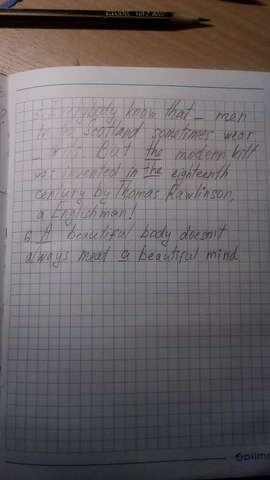 Everybody know that _ men
Scotland sometimes wear
But the modern kilt
was invented in the eighteenth
century by Thomas Rawlinson,
a Englishman!
6. A beautiful body doesn't
always meat a beautiful mind.